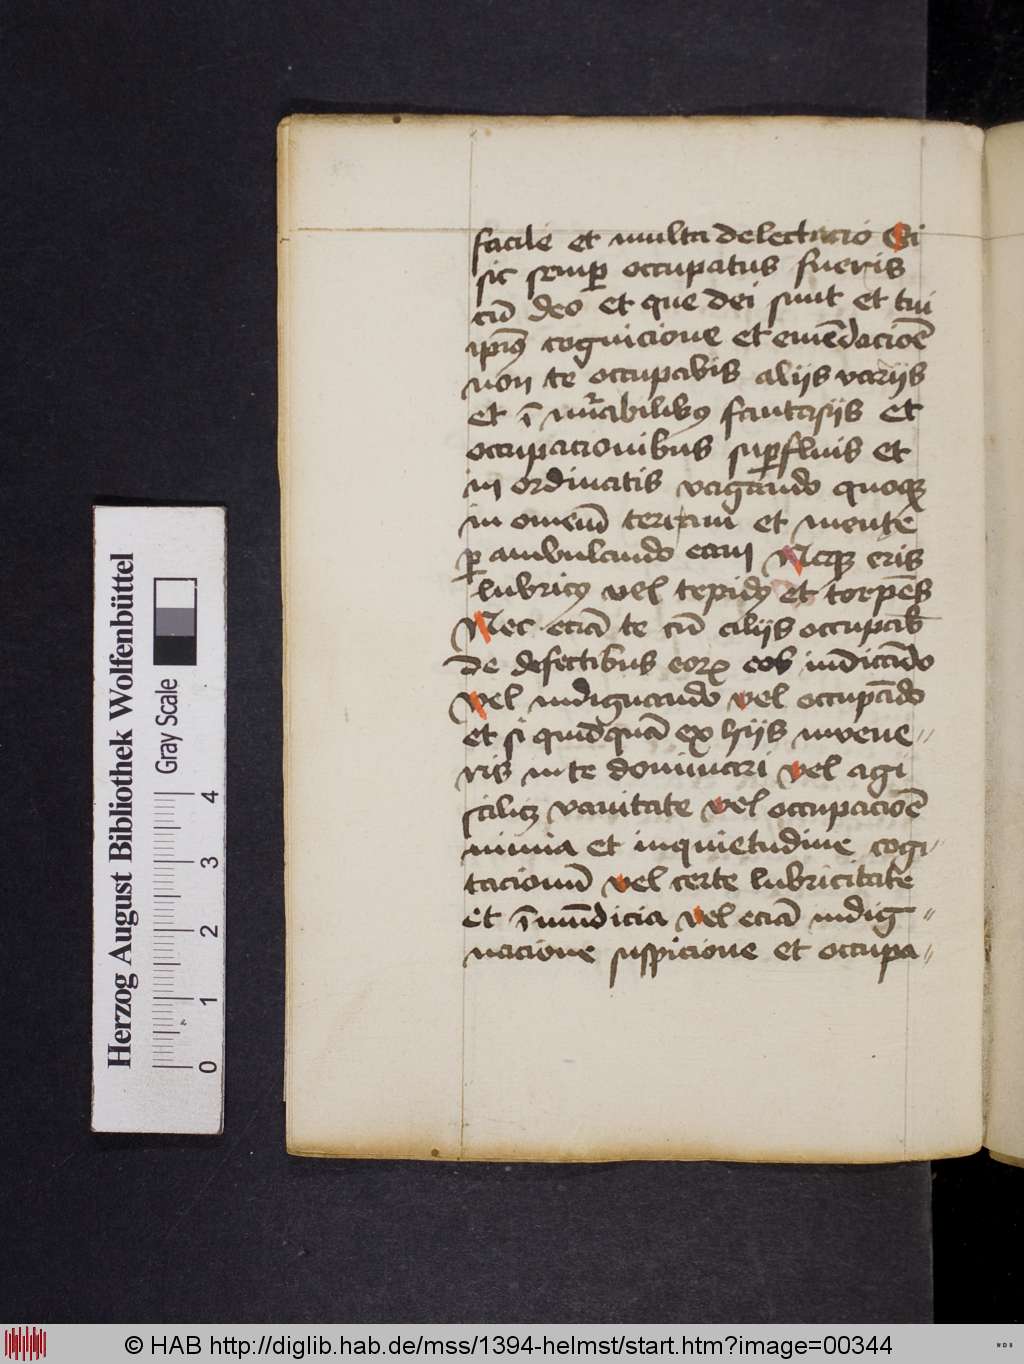 facile et multa delectacio Si
sic semp occupatus fueris
cū deo et que dei sunt et tui
ipiꝰ cognicione et emēdacioē
non te occupabis aliis variis
et ī nūabilibꝰ fantasiis et
occupacionibus suꝑfluis et
in ordinatis vagando quoqꝫ
in omnē terram et mente
ꝑ ambulando eam Neqꝫ eris
lubricꝰ vel tepidꝰ et torpēs
Nec eciā te cū aliis occupab
de defectibus eoꝝ eos iudicādo
vel indignando vel occupādo
et si quidquā ex hiis invene〃
ris in te dominari vel agi
scilicꝫ vanitate vel occupacioē
nimia et inquietudine cogi〃
tacionū vel certe lubricitate
et īmūdicia vel eciā indig〃
nacione suspicione et occupa〃
Herzog August Bibliothek Wolfenbüttel
Gray Scale
0 1 2 3 4
© HAB http://diglib.hab.de/mss/1394-helmst/start.htm?image=00344